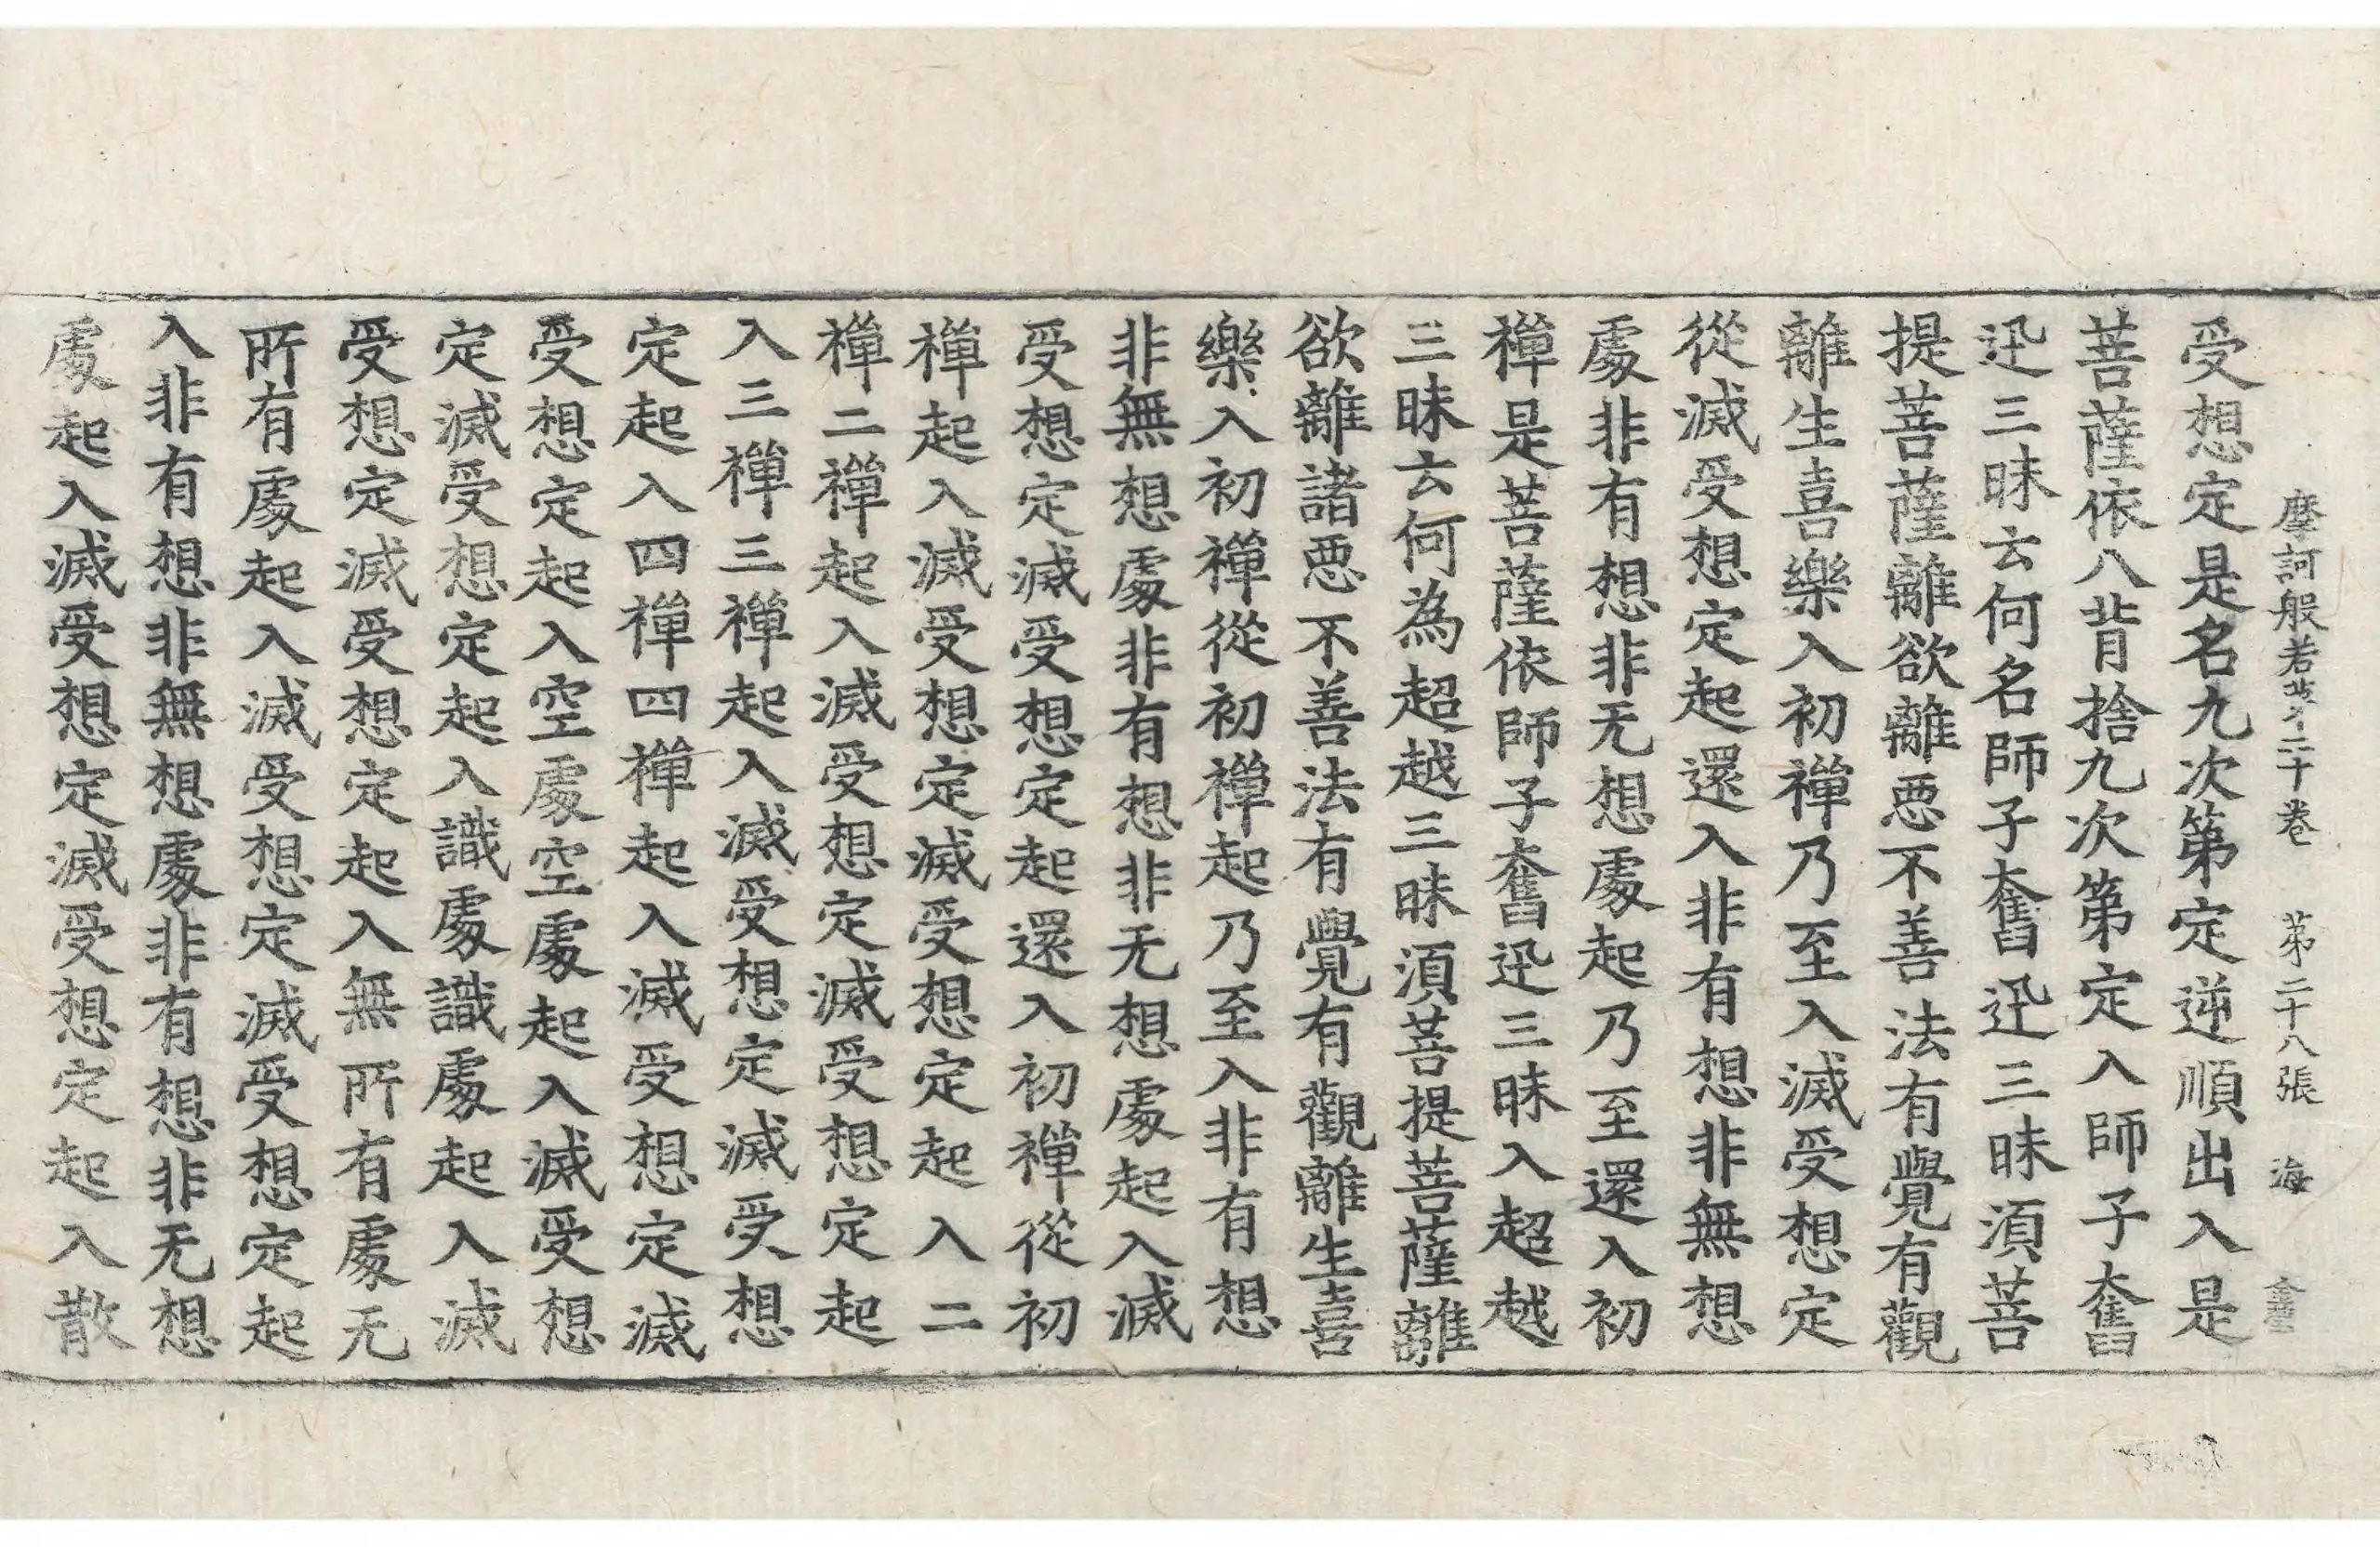 摩訶般若 第二十卷 第二十八張 海
受想定是名九次第定逆順出入是
菩薩依八背捨九次第定入師子奮
迅三昧云何名師子奮迅三昧湏菩
提菩薩離欲離惡不善法有覺有觀
離生喜樂入初禪乃至入滅受想定
從滅受想定起還入非有想非無想
處非有想非无想處起乃至還入初
禪是菩薩依師子奮迅三昧入超越
三昧云何為超越三昧湏菩提菩薩離
欲離諸惡不善法有覺有觀離生喜
樂入初禪從初禪起乃至入非有想
非無想處非有想非无想處起入滅
受想定滅受想定起還入初禪從初
禪起入滅受想定滅受想定起入二
禪二禪起入滅受想定滅受想定起
入三禪三禪起入滅受想定滅受想
定起入四禪四禪起入滅受想定滅
受想定起入空處空處起入滅受想
定滅受想定起入識處識處起入滅
受想定滅受想定起入無所有處无
所有處起入滅受想定滅受想定起
入非有想非無想處非有想非无想
處起入滅受想定滅受想定起入散